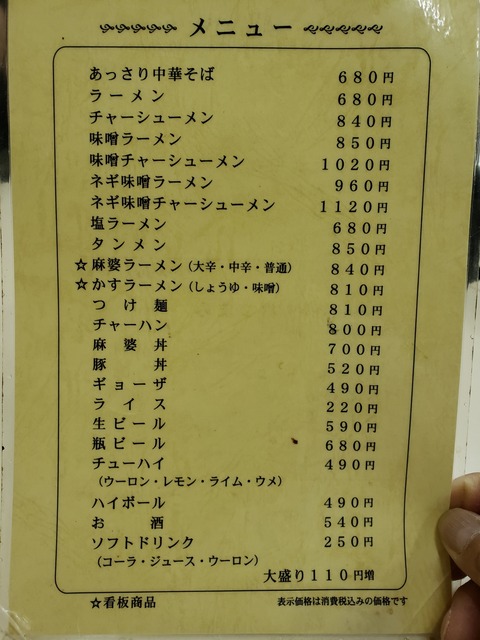 メニュー
あっさり中華そば 680円
ラーメン 680円
チャーシューメン 840円
味噌ラーメン 850円
味噌チャーシューメン 1020円
ネギ味噌ラーメン 960円
ネギ味噌チャーシューメン 1120円
塩ラーメン 680円
タンメン 850円
☆麻婆ラーメン(大辛・中辛・普通) 840円
☆かすラーメン(しょうゆ・味噌) 810円
つけ麺 810円
チャーハン 800円
麻婆丼 700円
豚丼 520円
ギョーザ 490円
ライス 220円
生ビール 590円
瓶ビール 680円
チューハイ 490円
(ウーロン・レモン・ライム・ウメ)
ハイボール 490円
お酒 540円
ソフトドリンク 250円
(コーラ・ジュース・ウーロン)
大盛り110円増
☆看板商品 表示価格は消費税込みの価格です